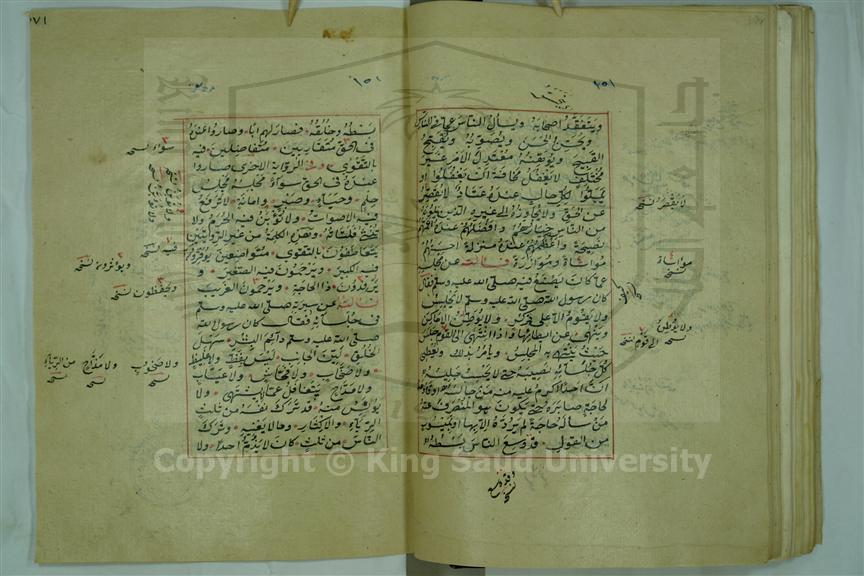 ١٥١
ويتفقد اصحابه ويسأل الناس عما فى الناس
ويحسن الحسن ويصوبه ويقبح
القبيح ويوهنه معتدل الامر غير
مختلف لا يغفل مخافة ان يغفلوا او
يميلوا لكل حال عنده عتاد لا يقصر
عن الحق ولا يجاوزه الى غيره الذين يلونه
من الناس خيارهم وافضلهم عنده اعمهم
نصيحة واعظمهم عنده منزلة احسنهم
مواساة وموازرة فسألته عن مجلسه
عما كان يصنع فيه صلى الله عليه وسلم فقال
كان رسول الله صلى الله عليه وسلم لا يجلس
ولا يقوم الا على ذكر ولا يوطن الاماكن
وينهى عن ايطانها واذا انتهى الى القوم جلس
حيث ينتهى به المجلس ويأمر بذلك ويعطى
كل جلسائه نصيبه حتى لا يحسب جليسه
ان احدا اكرم عليه منه من جالسه او قاومه
لحاجة صابره حتى يكون هو المنصرف عنه
من سأله حاجة لم يرده الا بها او بميسور
من القول قد وسع الناس بسطه
لا يقصر نسخه
مواساة
نسخه
ولا يوطن
نسخه
بسطه وخلقه فصار لهم ابا وصاروا عنده
فى الحق متقاربين متفاضلين فيه
بالتقوى وفى الرواية الاخرى صاروا
عنده فى الحق سواء مجلسه مجلس
حلم وحياء وصبر وامانة لا ترفع
فيه الاصوات ولا تؤبن فيه الحرم ولا
تنثى فلتاته وهذه الكلمة من غير الروايتين
يتعاطفون بالتقوى متواضعين يوقرون
فيه الكبير ويرحمون فيه الصغير و
يرفدون ذا الحاجة ويرحمون الغريب
فسألته عن سيرته صلى الله عليه وسلم
فى جلسائه فقال كان رسول الله
صلى الله عليه وسلم دائم البشر سهل
الخلق لين الجانب ليس بفظ ولا غليظ
ولا سخاب ولا فحاش ولا عياب
ولا مداح يتغافل عما لا يشتهى ولا
يوئس منه قد ترك نفسه من ثلث
الرياء والاكثار وما لا يعنيه وترك
الناس من ثلث كان لا يذم احدا ولا
سواء نسخه
فيه نسخه
ويحفظون نسخه
ولا صخاب نسخه
ولا مداح نسخه
Copyright © King Saud University